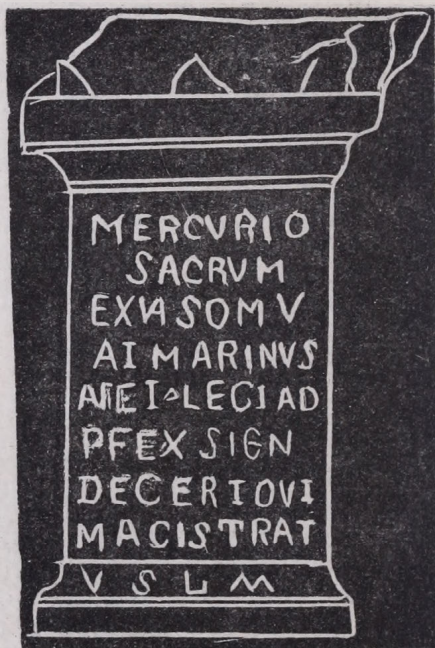 MERCVRIO
SACRVM
EXVISOMV
AIMARINVS
LEGIAD
PFEX SIGN
DECERIOVI
MAGISTRAT
V S L M